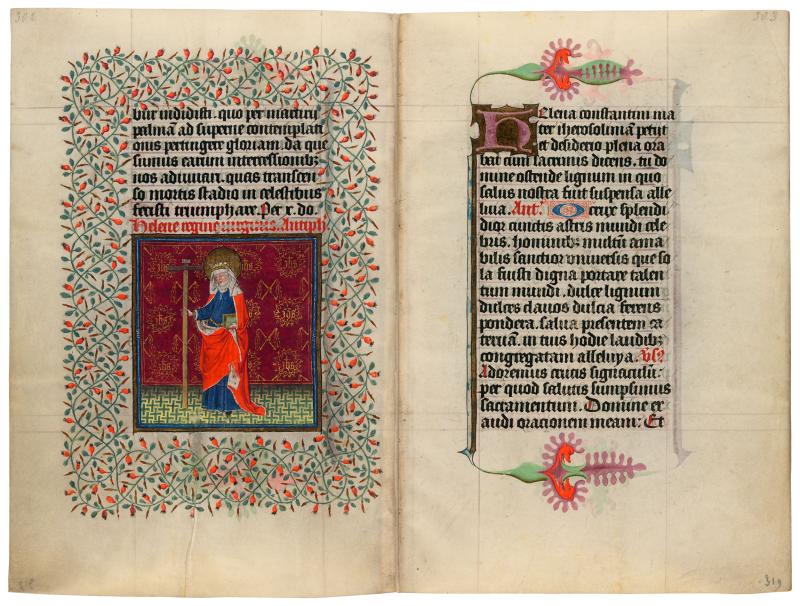 302
bur indidisti. quo per maturi
palmā ad superne contemplati
onis pertingere gloriam. da que
sumus earum intercessionibꝫ
nos adiuuari. quas transcen
so mortis stadio in celestibus
fecisti triumphare. Per x. do.
Helene regine uirginis. Antiph
ihs ihs
ihs ihs
ihs ihs
303
HElena constantini ma
ter iherosolimā petijt
et desiderio plena ora
bat cum lacrimis dicens. tu do
mine ostende lignum in quo
salus nostra fuit suspensa alle
luia. Ant.ª O crux splendi
dior cunctis astris mundi cele
bris. hominibꝫ multū ama
bilis sanctior vniuersis que so
la fuisti digna portare talen
tum mundi. dulce lignum
dulces clauos dulcia ferens
pondera. salua presentem ca
teruā. in tuis hodie laudibꝫ
congregatam alleluya. Vs.
Adoremus crucis signaculū.
per quod salutis sumpsimus
sacramentum. Domine ex
audi orationem meam: Et
319